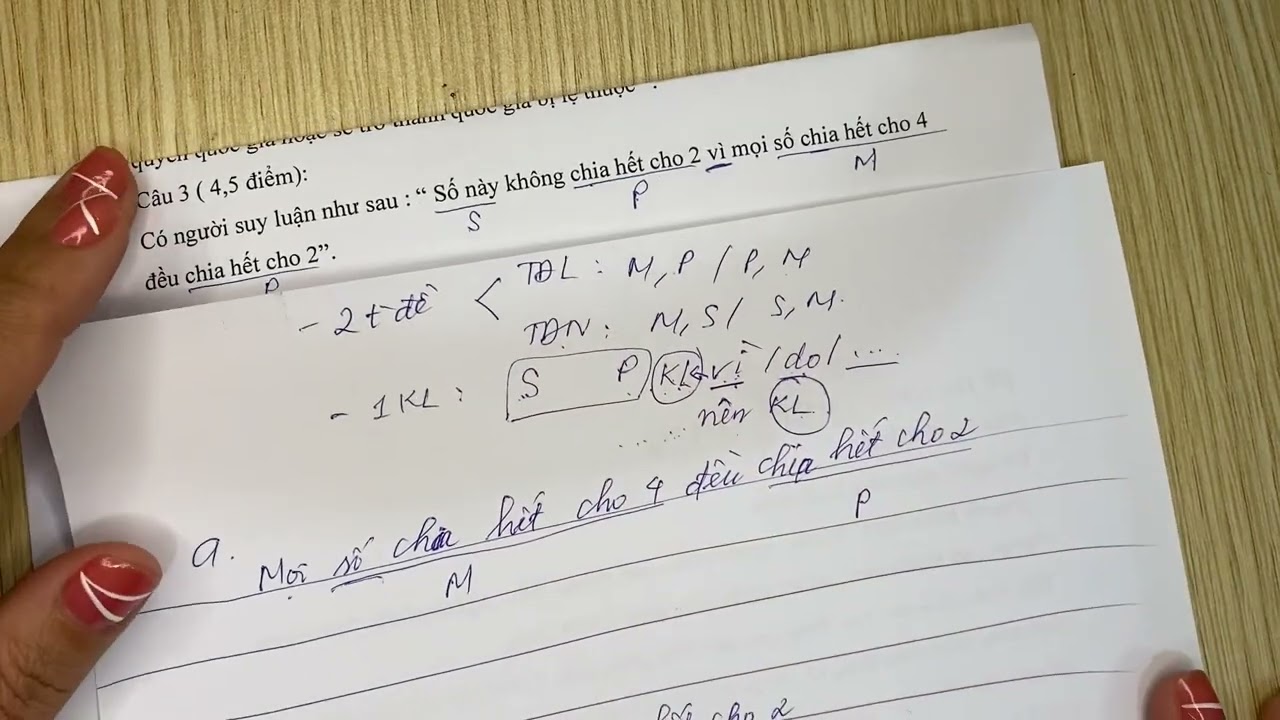 quyền quốc gia hoặc sẽ trở thành quốc gia bị lệ thuộc".
Câu 3 ( 4,5 điểm):
Có người suy luận như sau : “ Số này không chia hết cho 2 vì mọi số chia hết cho 4
S P M
đều chia hết cho 2”.
P
- 2 t đề < TĐL : M, P / P, M
TĐN : M, S / S, M.
- 1 KL : S P KL vì / do / ...
... ... nên KL
a. Mọi số chia hết cho 4 đều chia hết cho 2
M P
cho 2